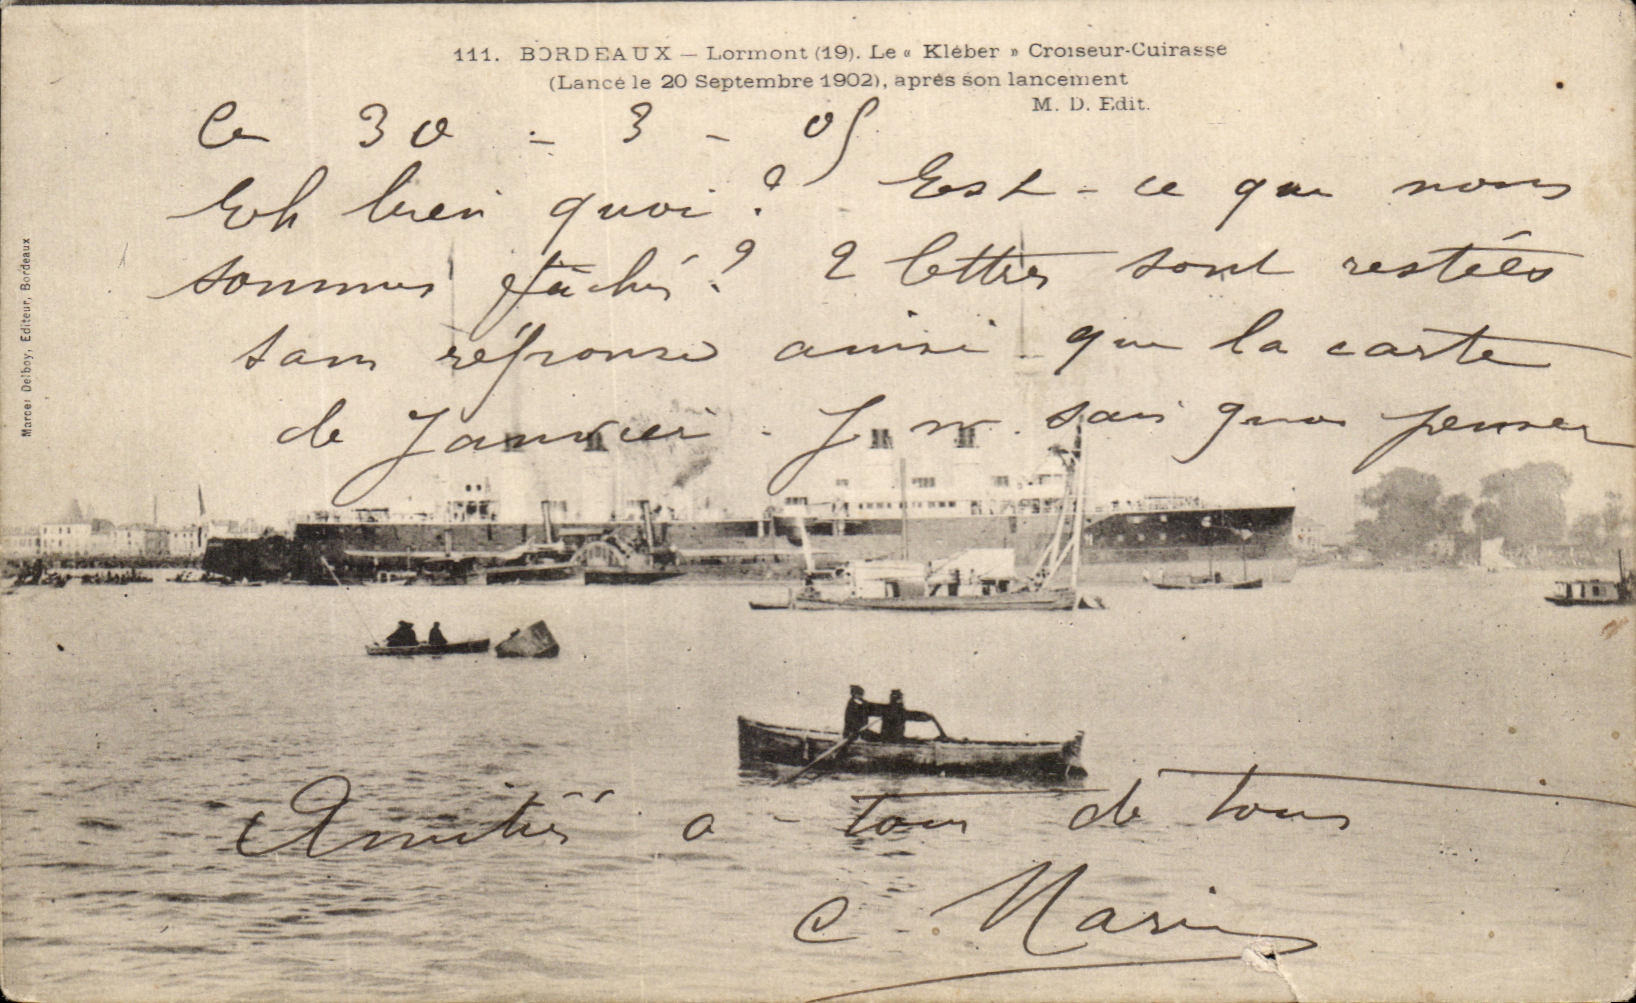 111. BORDEAUX — Lormont (19). Le « Kléber » Croiseur-Cuirasse
(Lancé le 20 Septembre 1902), après son lancement
M. D. Edit.
Marcel Delboy, Editeur, Bordeaux
Ce 30 - 3 - 05
Eh bien quoi ? Est-ce que nous
sommes fâchés ? 2 lettres sont restées
sans réponse ainsi que la carte
de Janvier. Je ne sais quoi penser
Amitiés à tous de tous
C Marin